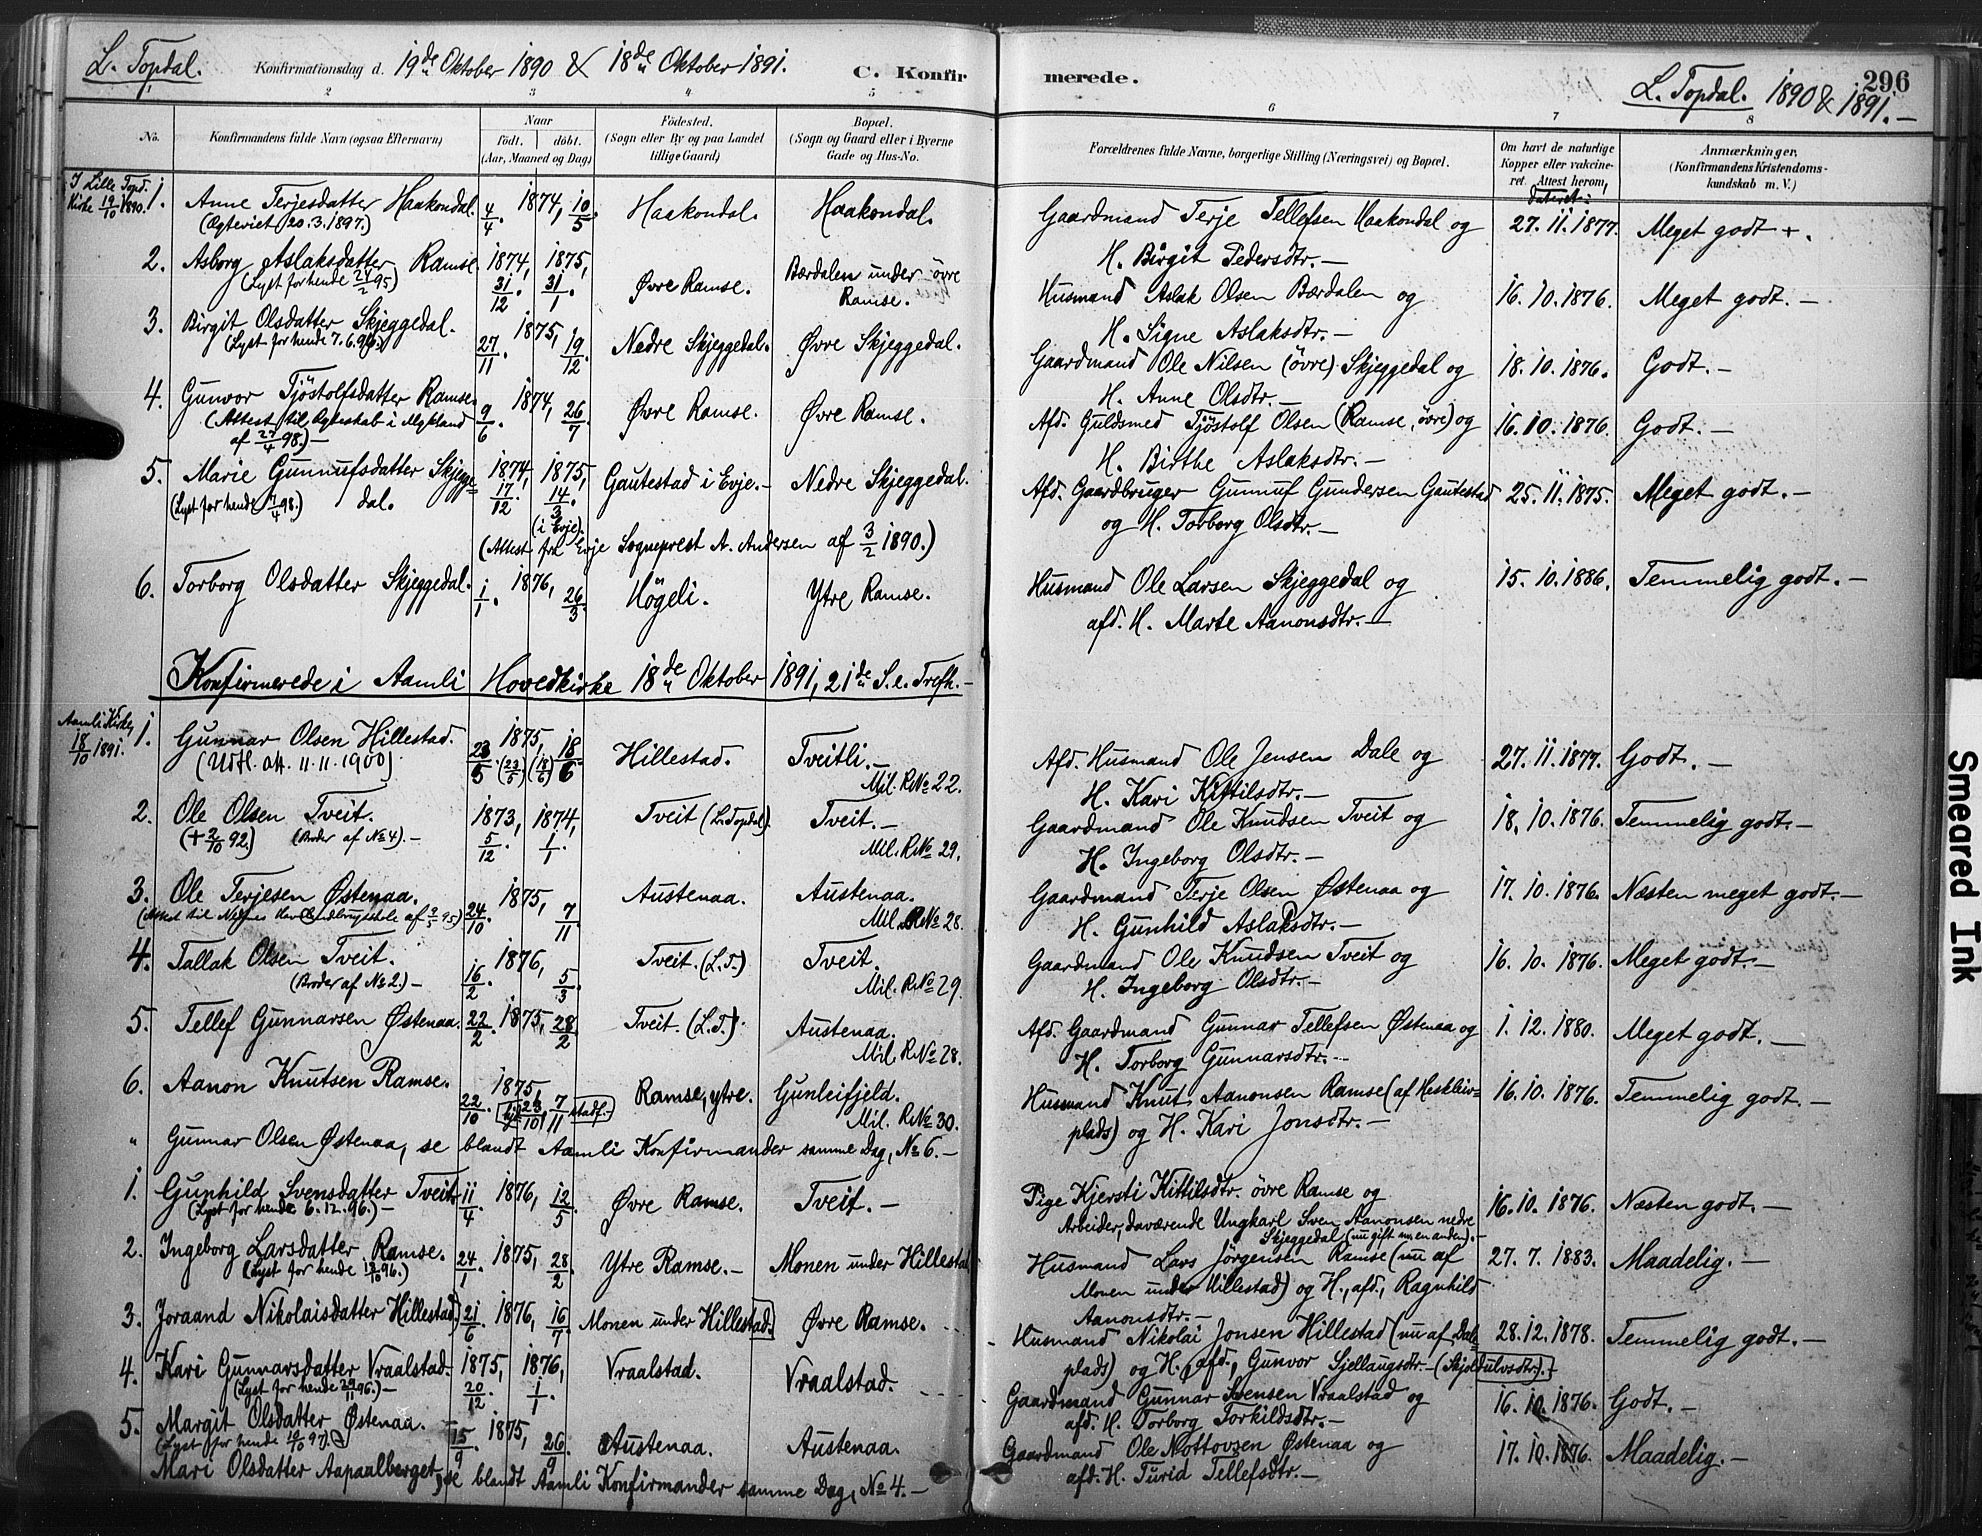 L. Topdal. Konfirmationsdag d. 19de Oktober 1890 & 18de Oktober 1891. C. Konfirmerede. L. Topdal. 1890 & 1891.— 296
1 2 3 4 5 6 7 8
No. Konfirmandens fulde Navn (ogsaa Efternavn) Naar født. døbt. (Aar, Maaned og Dag) Fødested. (Sogn eller By og paa Landet tillige Gaard) Bopæl. (Sogn og Gaard eller i Byerne Gade og Hus-No. Forældrenes fulde Navne, borgerlige Stilling (Næringsvei) og Bopæl. Om havt de naturlige Kopper eller vakcineret. Attest herom, dateret: Anmærkninger. (Konfirmandens Kristendomskundskab m. V.)
I Lille Topd. Kirke 19/10 1890. 1. Anne Terjesdatter Haakondal. 4/4. 1874, 10/5. Haakondal. Haakondal. Gaardmand Terje Tellefsen Haakondal og 27. 11. 1877. Meget godt +.
(Ægteviet 20.3.1897.) H. Birgit Pedersdtr.—
2. Asborg Aslaksdatter Ramse. 1874, 31/12. 1875, 31/1. Øvre Ramse. Bærdalen under øvre Ramse. Husmand Aslak Olsen Bærdalen og 16. 10. 1876. Meget godt.—
(Lyst for hende 24/2 95) H. Signe Aslaksdtr.—
3. Birgit Olsdatter Skjeggedal. 27/11. 1875, 19/12. Nedre Skjeggedal. Øvre Skjeggedal. Gaardmand Ole Nilsen (øvre) Skjeggedal og 18. 10. 1876. Godt.—
(Lyst for hende 7.6.96.) H. Anne Olsdtr.—
4. Gunvor Tjöstolfsdatter Ramse. 9/6. 1874, 26/7. Øvre Ramse. Øvre Ramse. Afd. Guldsmed Tjöstolf Olsen (Ramse, øvre) og 16. 10. 1876. Godt.—
(Attest til Ægteskab i Mykland af 27/4 98.)— H. Birthe Aslaksdtr.—
5. Marie Gunnufsdatter Skjeggedal. 1874, 17/12. 1875, 14/3. (i Evje). Gautestad i Evje.— Nedre Skjeggedal. Afd. Gaardbruger Gunnuf Gundersen Gautestad 25. 11. 1875. Meget godt.—
og H. Torborg Olsdtr.—
(Attest fra Evje Sogneprest A. Andersen af 3/2 1890.)
6. Torborg Olsdatter Skjeggedal. 1/1. 1876, 26/3. Högeli. Ytre Ramse. Husmand Ole Larsen Skjeggedal og 15. 10. 1886. Temmelig godt.—
afd. H. Marte Aanonsdtr.—
Konfirmerede i Aamli Hovedkirke 18de Oktober 1891, 21de S. e. Trefh.—
Aamli Kirke, 18/10 1891. 1. Gunnar Olsen Hillestad. 23/5. (23/5) 1875, (18/6) 18/6. Hillestad. Tveitli.— Mil. R. No 22. Afd. Husmand Ole Jensen Dale og 27. 11. 1877. Godt.—
(Udfl. att. 11.11.1900) H. Kari Kittilsdtr.—
2. Ole Olsen Tveit. 1873, 5/12. 1874, 1/1. Tveit (L. Topdal). Tveit.— Mil. R. No 29. Gaardmand Ole Knudsen Tveit og 18. 10. 1876. Temmelig godt.—
(+ 2/10 92.) (Broder af No 4).— H. Ingeborg Olsdtr.—
3. Ole Terjesen Østenaa. 24/10. 1875, 7/11. Austenaa. Austenaa. Mil. R. No 28. Gaardmand Terje Olsen Østenaa og 17. 10. 1876. Næsten meget godt.—
H. Gunhild Aslaksdtr.—
4. Tallak Olsen Tveit. 16/2. 1876, 5/3. Tveit. (L. T.) Tveit. Mil. R. No 29. Gaardmand Ole Knudsen Tveit og 16. 10. 1876. Meget godt.—
(Broder af No 2.)— H. Ingeborg Olsdtr.—
5. Tellef Gunnarsen Østenaa. 22/2. 1875, 28/2. Tveit. (L. T.) Austenaa. Mil. R. No 28. Afd. Gaardmand Gunnar Tellefsen Østenaa og 1. 12. 1880. Meget godt.—
H. Torborg Gunnarsdtr.—
6. Aanon Knutsen Ramse. 22/10. 1875, 7/11 Ramse, ytre. Gunleifjeld. Mil. R. No 30. Husmand Knut Aanonsen Ramse (af Heskleivplads) og H. Kari Jonsdtr.— 16. 10. 1876. Temmelig godt.—
" Gunnar Olsen Østenaa, se blandt Aamli Konfirmander samme Dag, No 6.—
1. Gunhild Svensdatter Tveit. 11/4. 1876, 12/5. Øvre Ramse. Tveit.— Pige Kjersti Kittilsdtr. øvre Ramse og 16. 10. 1876. Næsten godt.—
(Lyst for hende 6.12.96.)— Arbeider, daværende Ungkarl Sven Aanonsen nedre Skjeggedal (nu gift m. en anden).—
2. Ingeborg Larsdatter Ramse. 24/1. 1875, 28/2. Ytre Ramse.— Monen under Hillestad Husmand Lars Jørgensen Ramse (nu af 27. 7. 1883. Maadelig.—
Monen under Hillestad) og H., afd., Ragnhild Aanonsdtr.—
3. Joraand Nikolaisdatter Hillestad. 21/6. 1876, 16/7. Monen under Hillestad. Øvre Ramse. Husmand Nikolai Jonsen Hillestad (nu af Dale plads) og H., afd., Gunvor Sjellaugsdtr.— (Skjoldulvsdtr.).— 28. 12. 1878. Temmelig godt.—
4. Kari Gunnarsdatter Vraalstad. 1875, 20/12. 1876, 1/1. Vraalstad. Vraalstad. Gaardmand Gunnar Svensen Vraalstad og 16. 10. 1876. Godt.—
(Lyst for hende 29/11 96.)— afd. H. Torborg Torkildsdtr.—
5. Margit Olsdatter Østenaa. 15/9. 1875, 26/9. Austenaa. Austenaa. Gaardmand Ole Nottovsen Østenaa og 17. 10. 1876. Maadelig.—
(Lyst for hende 10/10 97.) afd. H. Turid Tellefsdtr.—
Mari Olsdatter Aapaalberget, se blandt Aamli Konfirmander samme Dag, No 4.—
Smeared Ink